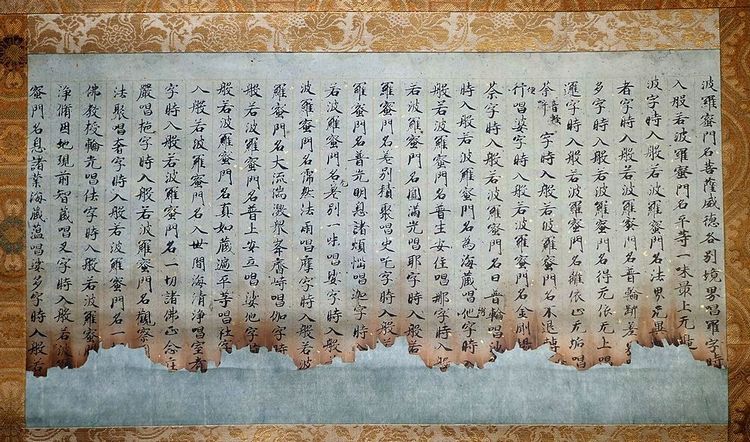 波羅蜜門名菩薩威德各別境界唱羅字時
入般若波羅蜜門名平等一味最上无邊
波字時入般若波羅蜜門名法界无異
者字時入般若波羅蜜門名普輪斷差
多字時入般若波羅蜜門名得无依无上唱
邏字時入般若波羅蜜門名離依止无垢唱
荼字時入般若波羅蜜門名不退轉
行唱婆字時入般若波羅蜜門名金剛場
荼字時入般若波羅蜜門名曰普輪唱沙
時入般若波羅蜜門名為海藏唱他字時入
般若波羅蜜門名普生安住唱那字時入般
若波羅蜜門名圓滿光唱耶字時入般
羅蜜門名差別積聚唱史吒字時入
羅蜜門名普光明息諸煩惱唱迦字時入
若波羅蜜門名差別一味唱娑字時入般
波羅蜜門名霈然法雨唱摩字時入般若波
羅蜜門名大流湍激眾峯齊峙唱伽字時
般若波羅蜜門名普上安立唱娑他字
般若波羅蜜門名真如藏遍平等唱社字
入般若波羅蜜門名入世間海清淨唱室者
字時入般若波羅蜜門名一切諸佛正念莊
嚴唱拖字時入般若波羅蜜門名觀察
法聚唱奢字時入般若波羅蜜門名一
佛教授輪光唱佉字時入般若波羅蜜門
淨修因地現前智藏唱叉字時入般若波
蜜門名息諸業海藏蘊唱娑多字時入般若